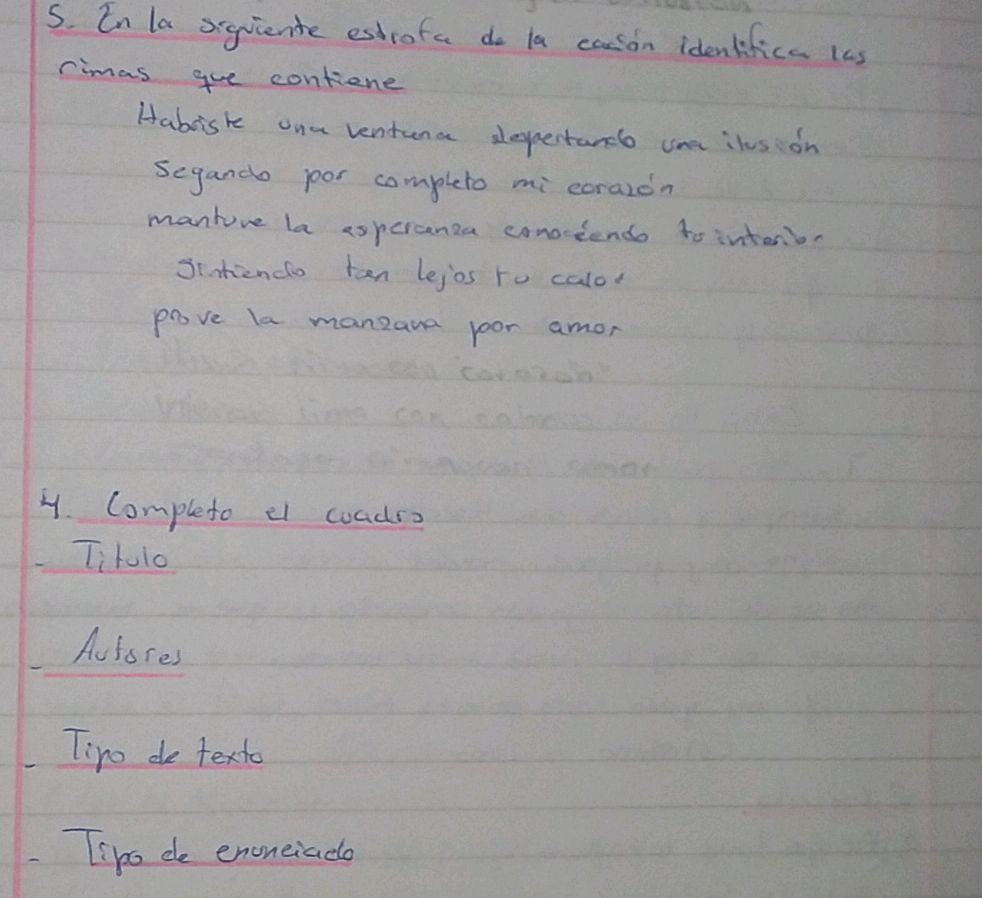 5. En la siguiente estrofa de la cación identifica las
rimas que contiene
Habriste una ventana despertando una ilusión
Segando por completo mi corazón
mantuve la esperanza conociendo tu interior
sintiendo tan lejos tu calor
prove la manzana por amor
4. Completo el cuadro
- Titulo
- Autores
- Tipo de texto
- Tipo de enunciado